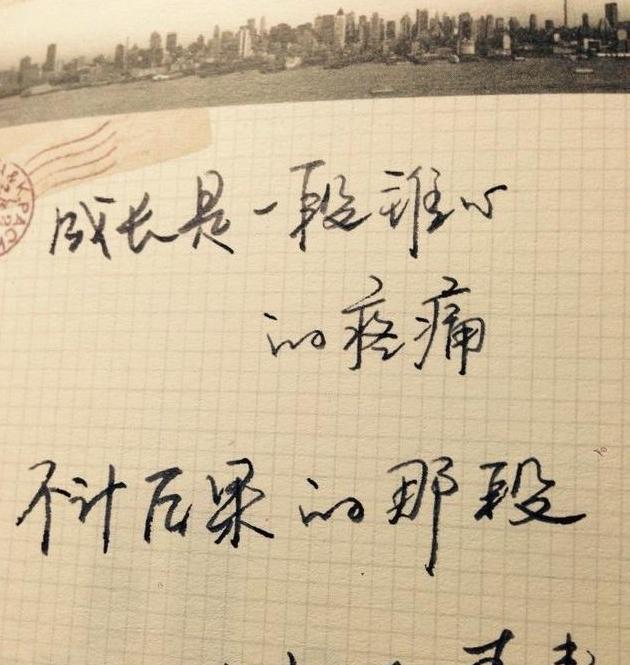 成长是一段锥心
的疼痛
不计后果的那段
KPACK